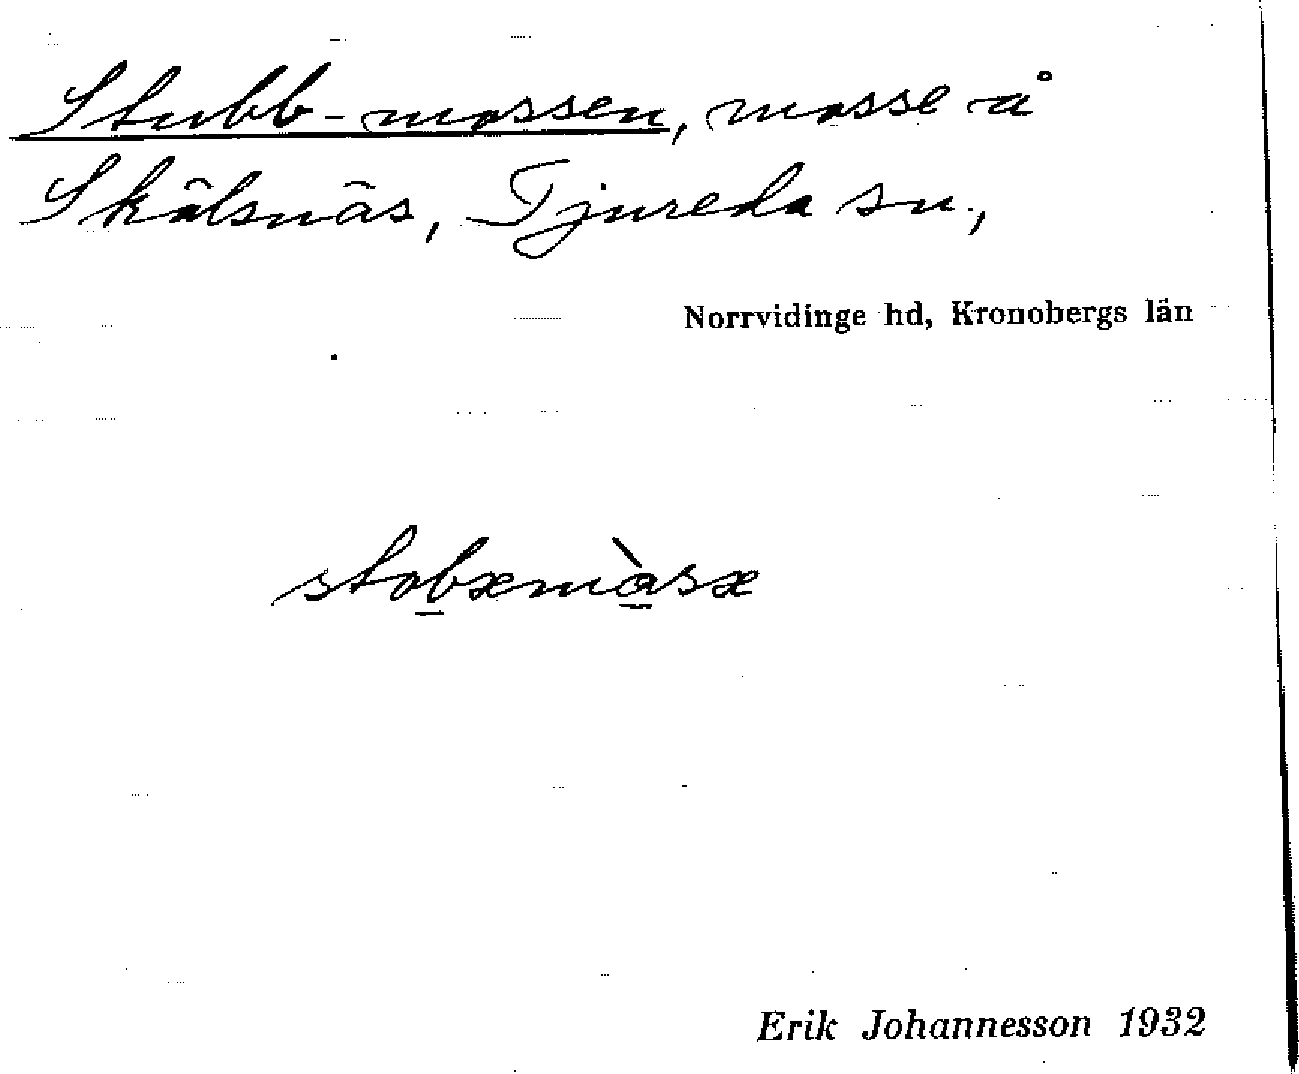 Stubb-mossen, mosse å
Skälsnäs, Tjureda sn.,
Norrvidinge hd, Kronobergs län
stobxmàsx
Erik Johannesson 1932